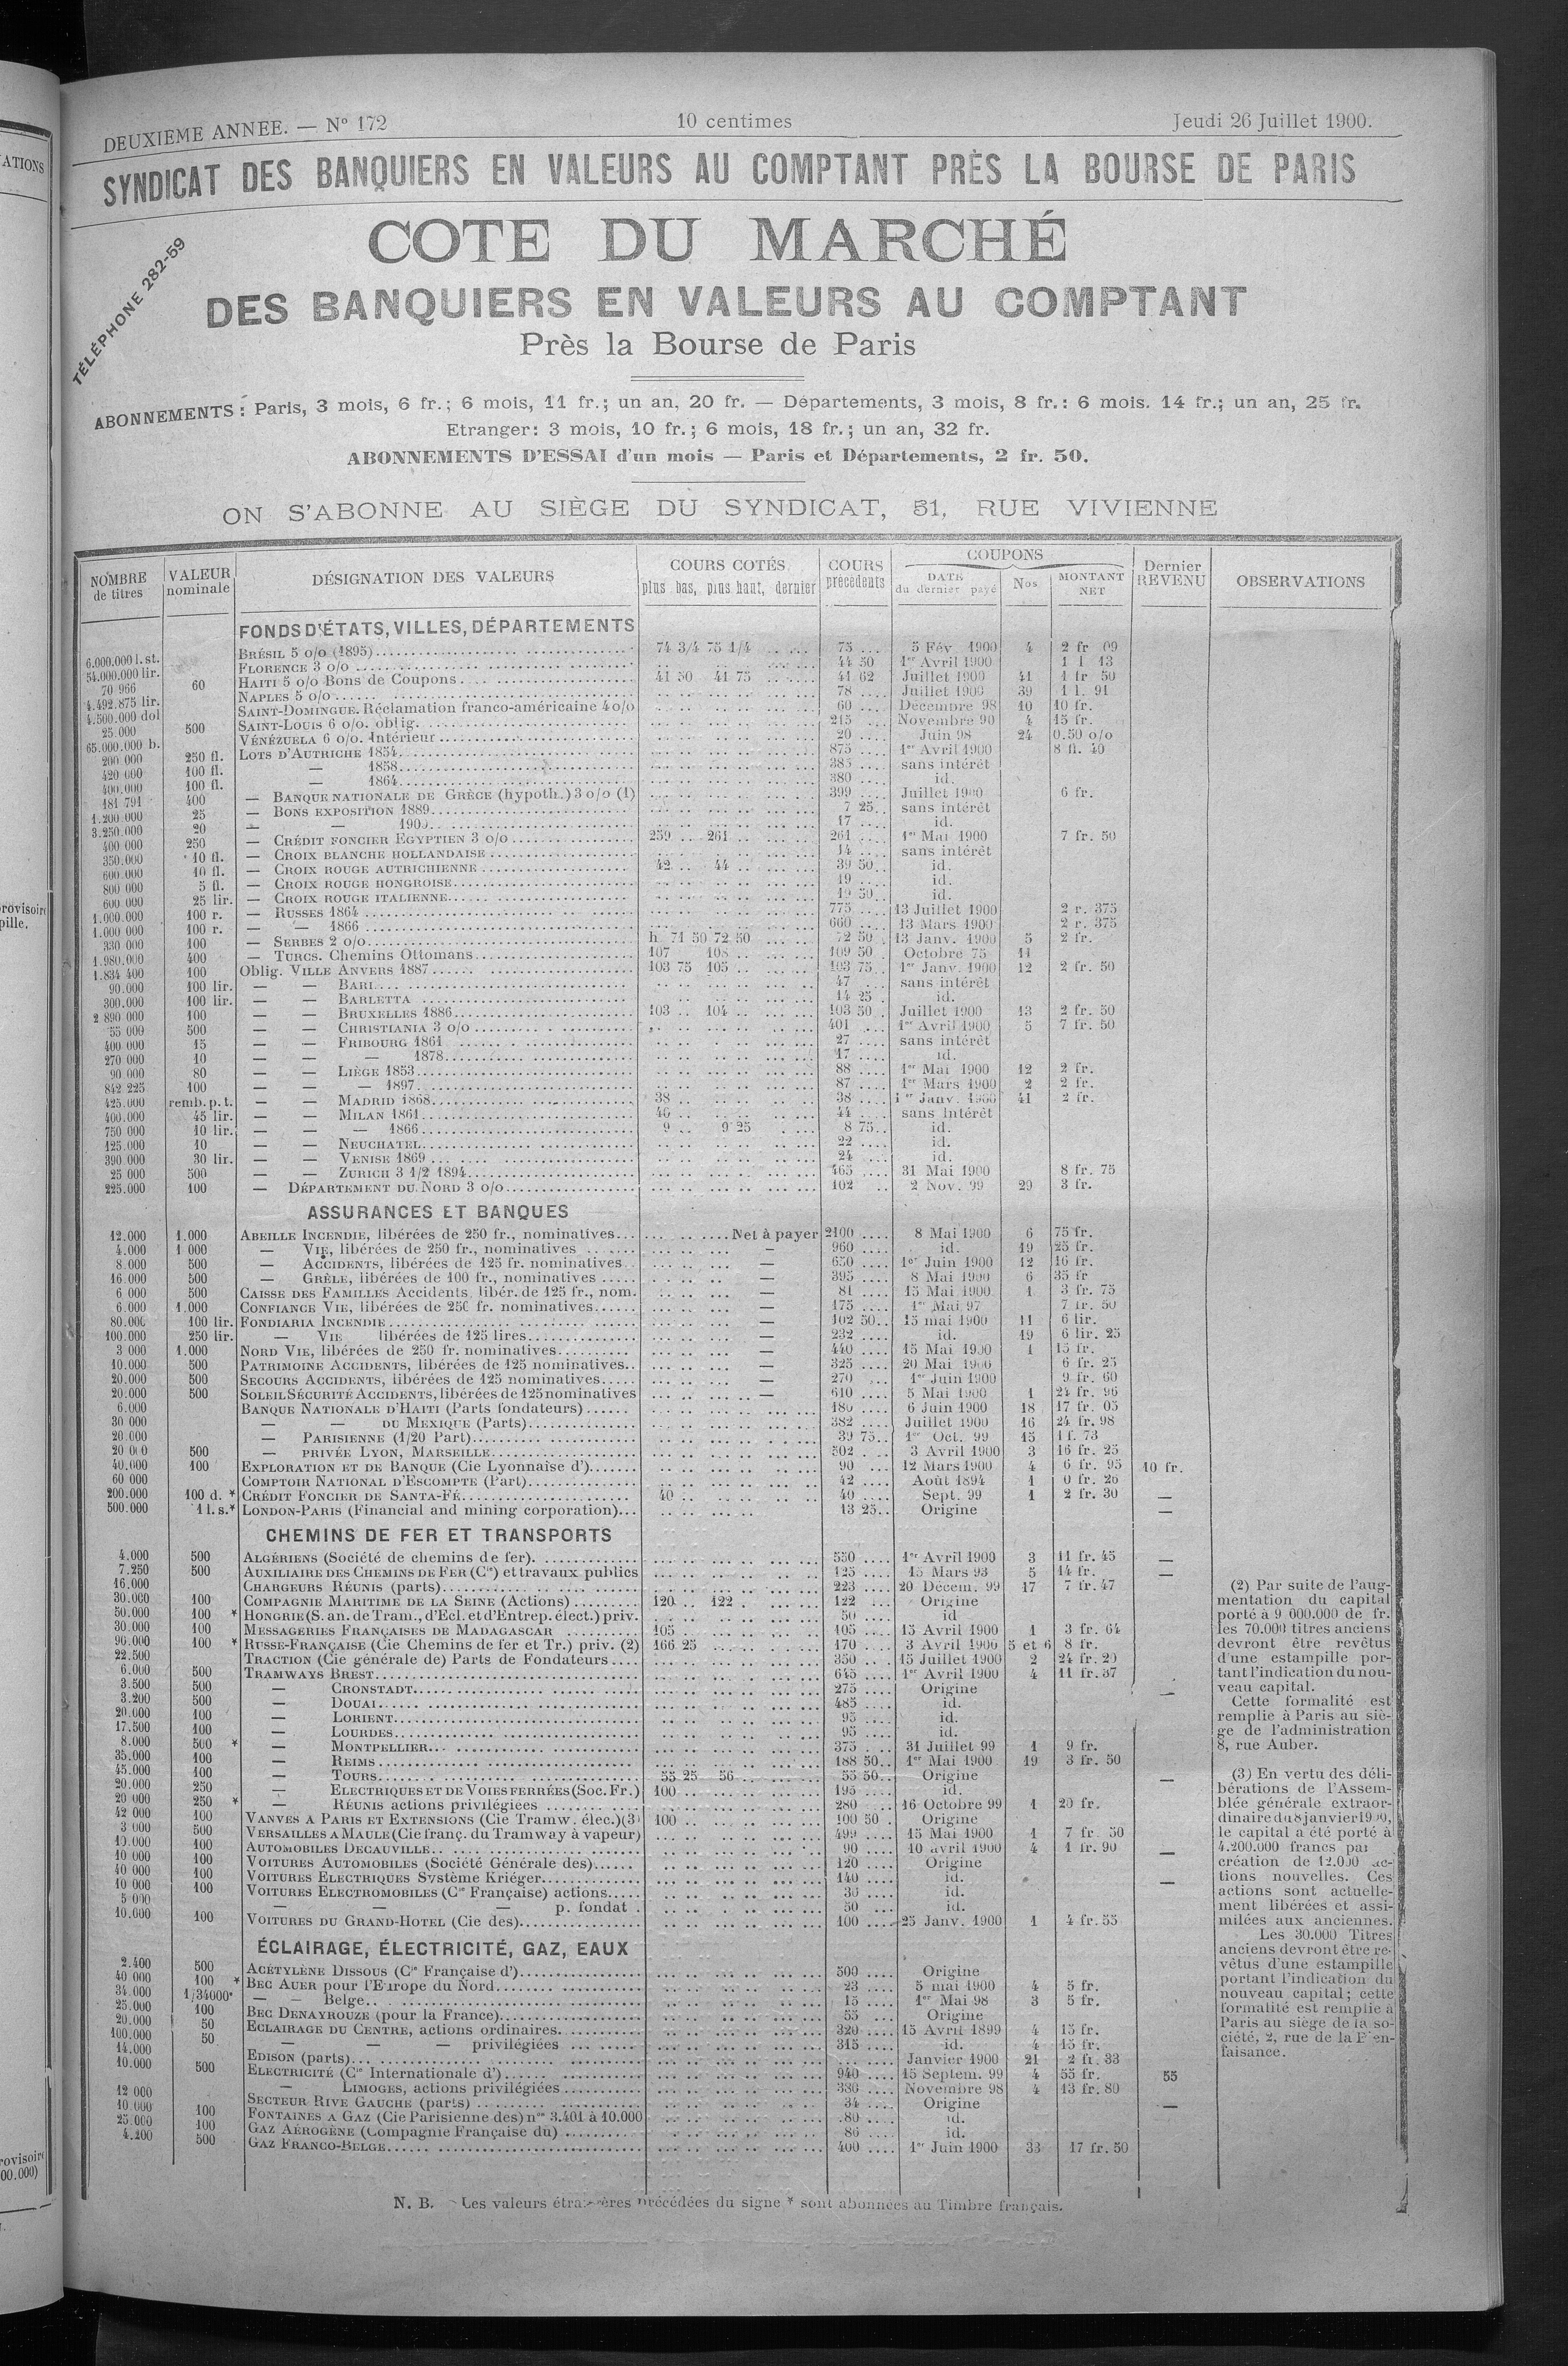 DEUXIEME ANNEE. — N° 172 10 centimes Jeudi 26 Juillet 1900.
SYNDICAT DES BANQUIERS EN VALEURS AU COMPTANT PRÈS LA BOURSE DE PARIS
TÉLÉPHONE 282-59
COTE DU MARCHÉ
DES BANQUIERS EN VALEURS AU COMPTANT
Près la Bourse de Paris
ABONNEMENTS : Paris, 3 mois, 6 fr.; 6 mois, 11 fr.; un an, 20 fr. — Départements, 3 mois, 8 fr.: 6 mois. 14 fr.; un an, 25 fr.
Etranger: 3 mois, 10 fr.; 6 mois, 18 fr.; un an, 32 fr.
ABONNEMENTS D'ESSAI d'un mois — Paris et Départements, 2 fr. 50.
ON S'ABONNE AU SIÈGE DU SYNDICAT, 51, RUE VIVIENNE
NOMBRE de titres | VALEUR nominale | DÉSIGNATION DES VALEURS | COURS COTÉS plus bas, plus haut, dernier | COURS précédents | COUPONS DATE du dernier payé | Nos | MONTANT NET | Dernier REVENU | OBSERVATIONS
FONDS D'ÉTATS, VILLES, DÉPARTEMENTS
6.000.000 l. st. BRÉSIL 5 o/o (1895) 74 3/4 75 1/4 75 5 Fév 1900 4 2 fr 09
54.000.000 lir. FLORENCE 3 o/o 44 50 1er Avril 1900 1 l 13
70 966 60 HAITI 5 o/o Bons de Coupons 41 50 41 75 41 62 Juillet 1900 41 1 fr 50
4.492.875 lir. NAPLES 5 o/o 78 Juillet 1900 39 1 l. 91
4.500.000 dol SAINT-DOMINGUE. Réclamation franco-américaine 4 o/o 60 Décembre 98 10 10 fr.
25.000 500 SAINT-LOUIS 6 o/o. oblig. 215 Novembre 90 4 15 fr.
65.000.000 b. VÉNÉZUELA 6 o/o. Intérieur 20 Juin 98 24 0.50 o/o
200 000 250 fl. LOTS D'AUTRICHE 1854 875 1er Avril 1900 8 fl. 40
420 000 100 fl. — 1858 385 sans intérêt
400.000 100 fl. — 1864 380 id.
181 791 400 — BANQUE NATIONALE DE GRÈCE (hypoth.) 3 o/o (1) 399 Juillet 1900 6 fr.
1.200.000 25 — BONS EXPOSITION 1889 7 25 sans intérêt
3.250.000 20 — — 1900 17 id.
400 000 250 — CRÉDIT FONCIER EGYPTIEN 3 o/o 259 261 261 1er Mai 1900 7 fr. 50
350.000 10 fl. — CROIX BLANCHE HOLLANDAISE 14 sans intérêt
600.000 10 fl. — CROIX ROUGE AUTRICHIENNE 42 44 39 50 id.
800 000 5 fl. — CROIX ROUGE HONGROISE 19 id.
600 000 25 lir. — CROIX ROUGE ITALIENNE 19 50 id.
1.000.000 100 r. — RUSSES 1864 775 13 Juillet 1900 2 r. 375
1.000 000 100 r. — — 1866 660 13 Mars 1900 2 r. 375
330 000 100 — SERBES 2 o/o h. 71 50 72 50 72 50 13 Janv. 1900 5 2 fr.
1.980.000 400 — TURCS. Chemins Ottomans 107 108 109 50 Octobre 75 11
1.834 400 100 Oblig. VILLE ANVERS 1887 103 75 105 103 75 1er Janv. 1900 12 2 fr. 50
90.000 100 lir. — — BARI 47 sans intérêt
300.000 100 lir. — — BARLETTA 14 25 id.
2 890 000 100 — — BRUXELLES 1886 103 104 103 50 Juillet 1900 13 2 fr. 50
55 000 500 — — CHRISTIANIA 3 o/o 401 1er Avril 1900 5 7 fr. 50
400 000 15 — — FRIBOURG 1861 27 sans intérêt
270 000 10 — — — 1878 17 id.
90 000 80 — — LIÈGE 1853 88 1er Mai 1900 12 2 fr.
842 225 100 — — — 1897 87 1er Mars 1900 2 2 fr.
425.000 remb. p. t. — — MADRID 1868 38 38 1er Janv. 1900 41 2 fr.
400.000 45 lir. — — MILAN 1861 46 44 sans intérêt
750 000 10 lir. — — — 1866 9 9 25 8 75 id.
125.000 10 — — NEUCHATEL 22 id.
390 000 30 lir. — — VENISE 1869 24 id.
25 000 500 — — ZURICH 3 1/2 1894 465 31 Mai 1900 8 fr. 75
225.000 100 — DÉPARTEMENT DU NORD 3 o/o 102 2 Nov. 99 29 3 fr.
ASSURANCES ET BANQUES
12.000 1.000 ABEILLE INCENDIE, libérées de 250 fr., nominatives Net à payer 2100 8 Mai 1900 6 75 fr.
4.000 1 000 — VIE, libérées de 250 fr., nominatives — 960 id. 19 25 fr.
8.000 500 — ACCIDENTS, libérées de 125 fr. nominatives — 650 1er Juin 1900 12 16 fr.
16.000 500 — GRÈLE, libérées de 100 fr., nominatives — 395 8 Mai 1900 6 35 fr
6 000 500 CAISSE DES FAMILLES Accidents, libér. de 125 fr., nom. — 81 15 Mai 1900 1 3 fr. 75
6.000 1.000 CONFIANCE VIE, libérées de 250 fr. nominatives — 175 1er Mai 97 7 fr. 50
80.000 100 lir. FONDIARIA INCENDIE — 102 50 15 mai 1900 11 6 lir.
100.000 250 lir. — VIE libérées de 125 lires — 232 id. 19 6 lir. 25
3 000 1.000 NORD VIE, libérées de 250 fr. nominatives — 440 15 Mai 1900 1 15 fr.
10.000 500 PATRIMOINE ACCIDENTS, libérées de 125 nominatives — 325 20 Mai 1900 6 fr. 25
20.000 500 SECOURS ACCIDENTS, libérées de 125 nominatives — 270 1er Juin 1900 9 fr. 60
20.000 500 SOLEIL SÉCURITÉ ACCIDENTS, libérées de 125 nominatives — 610 5 Mai 1900 1 24 fr. 96
6.000 BANQUE NATIONALE D'HAITI (Parts fondateurs) 180 6 Juin 1900 18 17 fr. 05
30 000 — — DU MEXIQUE (Parts) 382 Juillet 1900 16 24 fr. 98
20.000 — PARISIENNE (1/20 Part) 39 75 1er Oct. 99 15 1 f. 73
20 000 500 — PRIVÉE LYON, MARSEILLE 502 3 Avril 1900 3 16 fr. 25
40.000 100 EXPLORATION ET DE BANQUE (Cie Lyonnaise d') 90 12 Mars 1900 4 6 fr. 95 10 fr.
60 000 COMPTOIR NATIONAL D'ESCOMPTE (Part) 42 Août 1894 1 0 fr. 26
200.000 100 d. * CRÉDIT FONCIER DE SANTA-FÉ 40 40 Sept. 99 1 2 fr. 30 —
500.000 1 l. s.* LONDON-PARIS (Financial and mining corporation) 13 25 Origine —
CHEMINS DE FER ET TRANSPORTS
4.000 500 ALGÉRIENS (Société de chemins de fer). 550 1er Avril 1900 3 11 fr. 45 —
7.250 500 AUXILIAIRE DES CHEMINS DE FER (Cie) et travaux publics 125 15 Mars 93 5 14 fr. —
16.000 CHARGEURS RÉUNIS (parts) 223 20 Décem. 99 17 7 fr. 47
30.000 100 COMPAGNIE MARITIME DE LA SEINE (Actions) 120 122 122 Origine
50.000 100 * HONGRIE (S. an. de Tram., d'Ecl. et d'Entrep. élect.) priv. 50 id
30.000 100 MESSAGERIES FRANÇAISES DE MADAGASCAR 105 105 15 Avril 1900 1 3 fr. 64
90.000 100 * RUSSE-FRANÇAISE (Cie Chemins de fer et Tr.) priv. (2) 166 25 170 3 Avril 1900 5 et 6 8 fr.
22.500 TRACTION (Cie générale de) Parts de Fondateurs 350 15 Juillet 1900 2 24 fr. 20
6.000 500 TRAMWAYS BREST 645 1er Avril 1900 4 11 fr. 37
3.500 500 — CRONSTADT 275 Origine —
3.200 500 — DOUAI 485 id.
20.000 100 — LORIENT 95 id.
17.500 100 — LOURDES 95 id.
8.000 500 * — MONTPELLIER 375 31 Juillet 99 1 9 fr.
35.000 100 — REIMS 188 50 1er Mai 1900 19 3 fr. 50
45.000 100 — TOURS 55 25 56 55 50 Origine —
20.000 250 — ELECTRIQUES ET DE VOIES FERRÉES (Soc. Fr.) 100 195 id.
20 000 250 * — RÉUNIS actions privilégiées 280 16 Octobre 99 1 20 fr.
42 000 100 VANVES A PARIS ET EXTENSIONS (Cie Tramw. élec.) (3) 100 100 50 Origine
3 000 500 VERSAILLES A MAULE (Cie franç. du Tramway à vapeur) 499 15 Mai 1900 1 7 fr. 50
10.000 100 AUTOMOBILES DECAUVILLE 90 10 avril 1900 4 1 fr. 90 —
10 000 100 VOITURES AUTOMOBILES (Société Générale des) 120 Origine
40 000 100 VOITURES ELECTRIQUES Système Kriéger 140 id. —
10 000 100 VOITURES ELECTROMOBILES (Cie Française) actions 30 id.
5 000 — — — p. fondat. 50 id.
10.000 100 VOITURES DU GRAND-HOTEL (Cie des) 100 25 Janv. 1900 1 4 fr. 55
(2) Par suite de l'aug-
mentation du capital
porté à 9 000.000 de fr.
les 70.000 titres anciens
devront être revêtus
d'une estampille por-
tant l'indication du nou-
veau capital.
Cette formalité est
remplie à Paris au siè-
ge de l'administration
8, rue Auber.
(3) En vertu des déli-
bérations de l'Assem-
blée générale extraor-
dinaire du 8 janvier 1900,
le capital a été porté à
4.200.000 francs par
création de 12.000 ac-
tions nouvelles. Ces
actions sont actuelle-
ment libérées et assi-
milées aux anciennes.
Les 30.000 Titres
anciens devront être re-
vêtus d'une estampille
portant l'indication du
nouveau capital; cette
formalité est remplie à
Paris au siège de la so-
ciété, 2, rue de la Bien-
faisance.
ÉCLAIRAGE, ÉLECTRICITÉ, GAZ, EAUX
2.400 500 ACÉTYLÈNE DISSOUS (Cie Française d') 500 Origine
40 000 100 * BEC AUER pour l'Europe du Nord 23 5 mai 1900 4 5 fr.
34.000 1/34000* — — Belge 15 1er Mai 98 3 5 fr.
25.000 100 BEC DENAYROUZE (pour la France) 55 Origine
20.000 50 ECLAIRAGE DU CENTRE, actions ordinaires 320 15 Avril 1899 4 15 fr.
100.000 50 — — — privilégiées 315 id. 4 15 fr.
14.000 EDISON (parts) Janvier 1900 21 2 fr. 33
10.000 500 ELECTRICITÉ (Cie Internationale d') 940 15 Septem. 99 4 55 fr. 55
— LIMOGES, actions privilégiées 380 Novembre 98 4 13 fr. 80
12 000 SECTEUR RIVE GAUCHE (parts) 34 Origine —
10 000 100 FONTAINES A GAZ (Cie Parisienne des) nos 3.401 à 10.000 80 id.
25.000 100 GAZ AÉROGÈNE (Compagnie Française du) 86 id.
4.200 500 GAZ FRANCO-BELGE 400 1er Juin 1900 33 17 fr. 50
N. B. - Les valeurs étrangères précédées du signe * sont abonnées au Timbre français.
ATIONS
rovisoire
pille.
rovisoire
00.000)